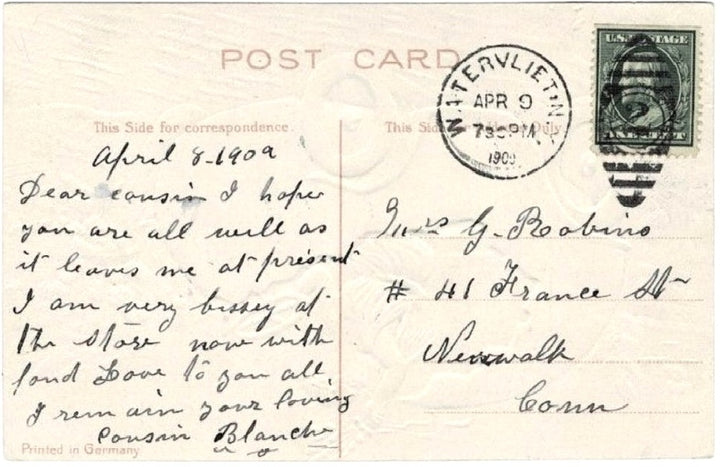 POST CARD
This Side for correspondence.
April 8-1909
Dear cousin I hope
you are all well as
it leaves me at present
I am very bissey at
the store now with
fond Love to you all
I remain your loving
Cousin Blanche
Printed in Germany
This Side Only.
WATERVLIET N.Y.
APR 9
7 30 PM
1909
U.S. POSTAGE
ONE CENT
2
Mrs G. Robino
# 41 France St
Newwalk
Conn